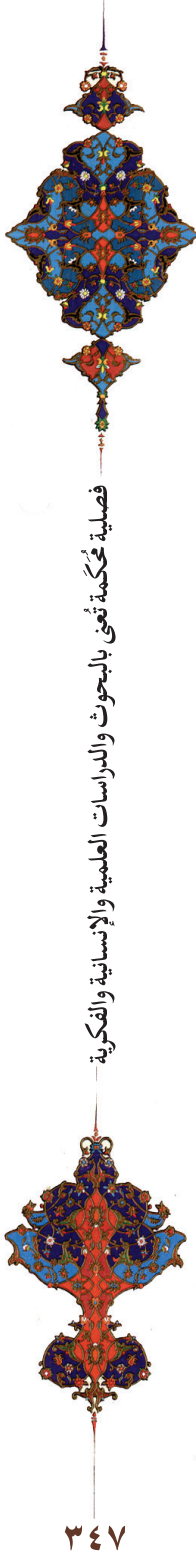 فصلية مُحَكَمة تُعنى بالبحوث والدراسات العلمية والإنسانية والفكرية
٣٤٧